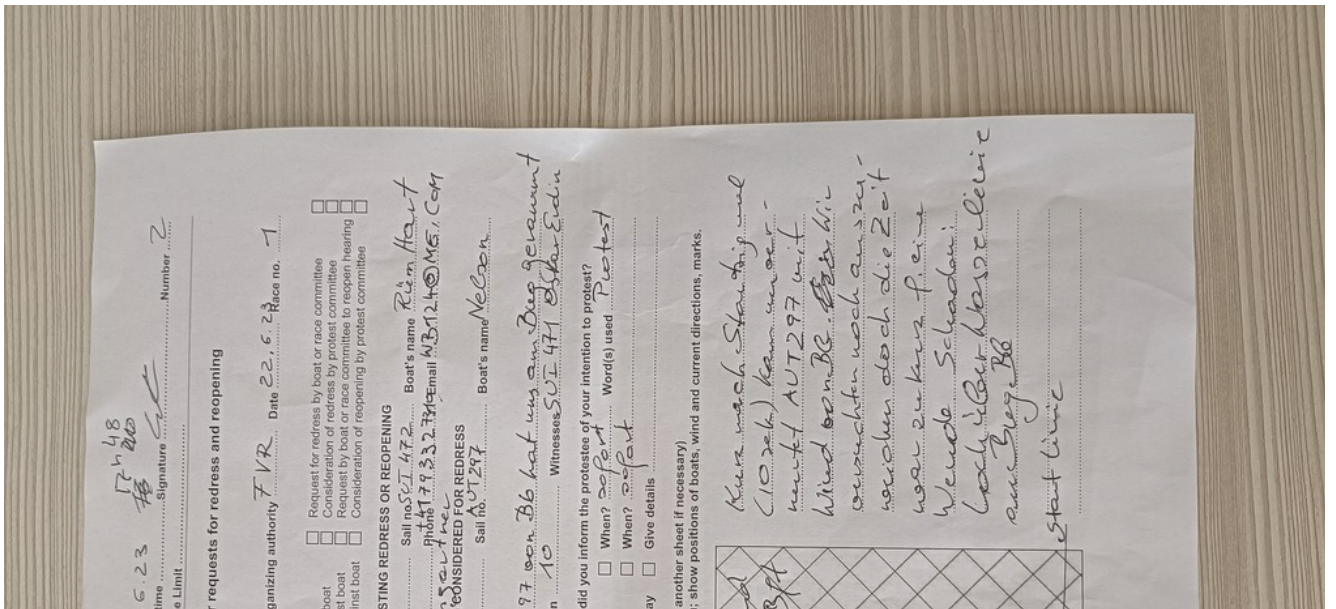 6.23 17h48
time Signature Number 2
e Limit
r requests for redress and reopening
ganizing authority FVR Date 22.6.23 Race no. 1
boat Request for redress by boat or race committee
st boat Consideration of redress by protest committee
Request by boat or race committee to reopen hearing
inst boat Consideration of reopening by protest committee
STING REDRESS OR REOPENING
Sail no SUI 472 Boat's name Riem Hart
Phone Email WB124@ME.COM
CONSIDERED FOR REDRESS
Sail no. AUT297 Boat's name Nelson
97 von Bb hat uns am Bug gerammt
n 10 Witnesses SUI 471
did you inform the protestee of your intention to protest?
When? sofort Word(s) used Protest
When? sofort
ay Give details
another sheet if necessary)
; show positions of boats, wind and current directions, marks.
Kurz nach Startsignal
(10 sek) kam unver-
mutet AUT297 mit
Wind von BB. Wir
versuchten noch auszu-
weichen doch die Zeit
war zu kurz für eine
Wende Schaden:
Loch über Wasserlinie
am Bug BB
Startline